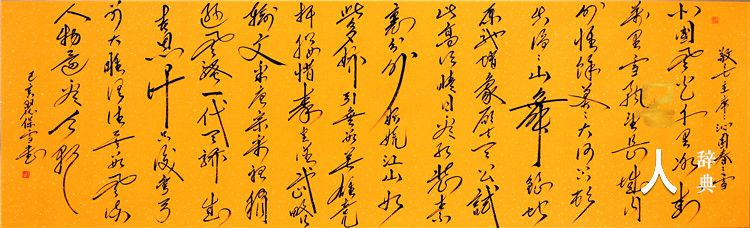 敬书毛主席沁园春雪
北国风光千里冰封
万里雪飘望长城内
外惟馀莽莽大河上下顿
失滔滔山舞银蛇
原驰蜡象欲与天公试
比高须晴日看红装素
裹分外妖娆江山如
此多娇引无数英雄竞
折腰惜秦皇汉武略
输文采唐宗宋祖稍
逊风骚一代天骄成
吉思汗只识弯弓
射大雕俱往矣数风流
人物还看今朝
己亥
人 辞典